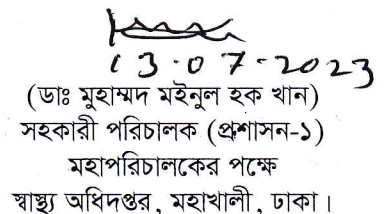 13.07-2023
(ডাঃ মুহাম্মদ মইনুল হক খান)
সহকারী পরিচালক (প্রশাসন-১)
মহাপরিচালকের পক্ষে
স্বাস্থ্য অধিদপ্তর, মহাখালী, ঢাকা।